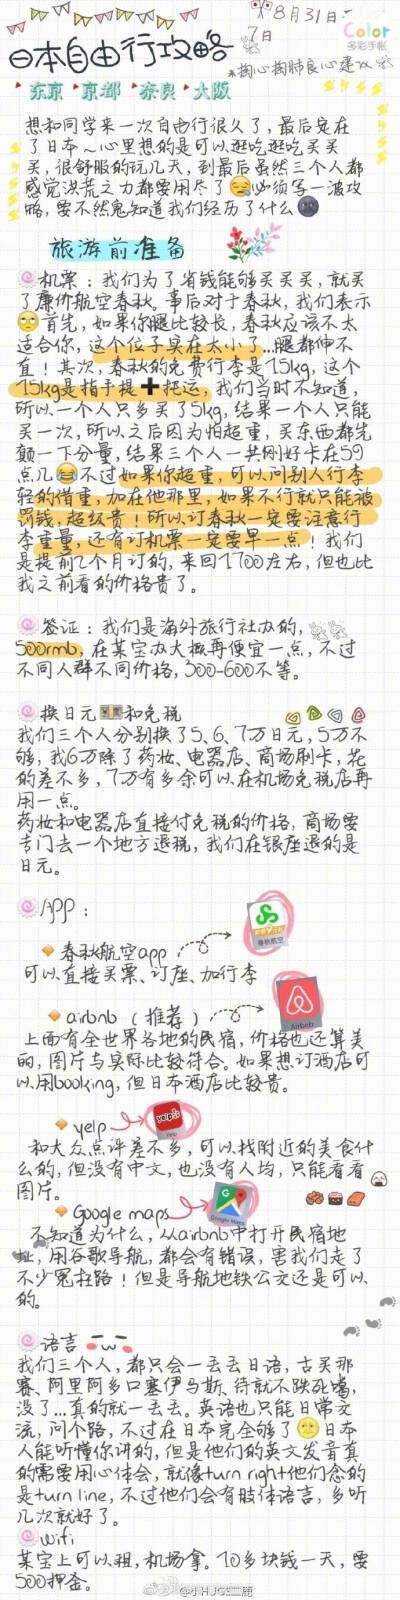 8月31日
7日
Color
多彩手帐
日本自由行攻略
*掏心掏肺良心建议
东京 京都 奈良 大阪
想和同学来一次自由行很久了,最后定在
了日本~心里想的是可以逛吃逛吃买买
买,很舒服的玩几天,到最后虽然三个人都
感觉洪荒之力都要用尽了😪必须写一波攻
略,要不然鬼知道我们经历了什么🌚
旅游前准备
🍥机票:我们为了省钱能够买买买,就买
了廉价航空春秋,事后对于春秋,我们表示
🙄首先,如果你腿比较长,春秋应该不太
适合你,这个位子实在太小了...腿都伸不
直!其次,春秋的免费行李是15kg,这个
15kg是指手提➕托运,我们当时不知道,
所以一个人只多买了5kg,结果一个人只能
买一次,所以之后因为怕超重,买东西都先
颠一下分量,结果三个人一共刚好卡在59
点几😂不过如果你超重,可以问别人行李
轻的借重,加在他那里,如果不行就只能被
罚钱,超级贵!所以订春秋一定要注意行
李重量,还有订机票一定要早一点!我们
是提前几个月订的,来回1700左右,但也比
我之前看的价格贵了。
🍥签证:我们是海外旅行社办的,
500rmb,在某宝办大概再便宜一点,不过
不同人群不同价格,300-600不等。
🍥换日元💴和免税
我们三个人分别换了5、6、7万日元,5万不
够,我6万除了药妆、电器店、商场刷卡,花
的差不多,7万有多余可以在机场免税店再
用一点。
药妆和电器店直接付免税的价格,商场要
专门去一个地方退税,我们在银座退的是
日元。
🍥APP:
🔸春秋航空app
春秋航空
可以直接买票、订座、加行李
🔸airbnb(推荐)
Airbnb
上面有全世界各地的民宿,价格也还算美
丽,图片与实际比较符合。如果想订酒店可
以用booking,但日本酒店比较贵。
🔸yelp
yelp
和大众点评差不多,可以找附近的美食什
么的,但没有中文,也没有人均,只能看看
图片。
🔸Google maps
Google Maps
不知道为什么,从airbnb中打开民宿地
址,用谷歌导航,都会有错误,害我们走了
不少冤枉路!但是导航地铁公交还是可以
的。
🍥语言
我们三个人,都只会一丢丢日语,古买那
赛、阿里阿多口塞伊马斯、待就不跌死嘎,
没了...真的就一丢丢。英语也只能日常交
流,问个路,不过在日本完全够了🌝日本
人能听懂你讲的,但是他们的英文发音真
的需要用心体会,就像turn right他们念的
是turn line,不过他们会有肢体语言,多听
几次就好了。
🍥wifi
某宝上可以租,机场拿。10多块钱一天,要
500押金。